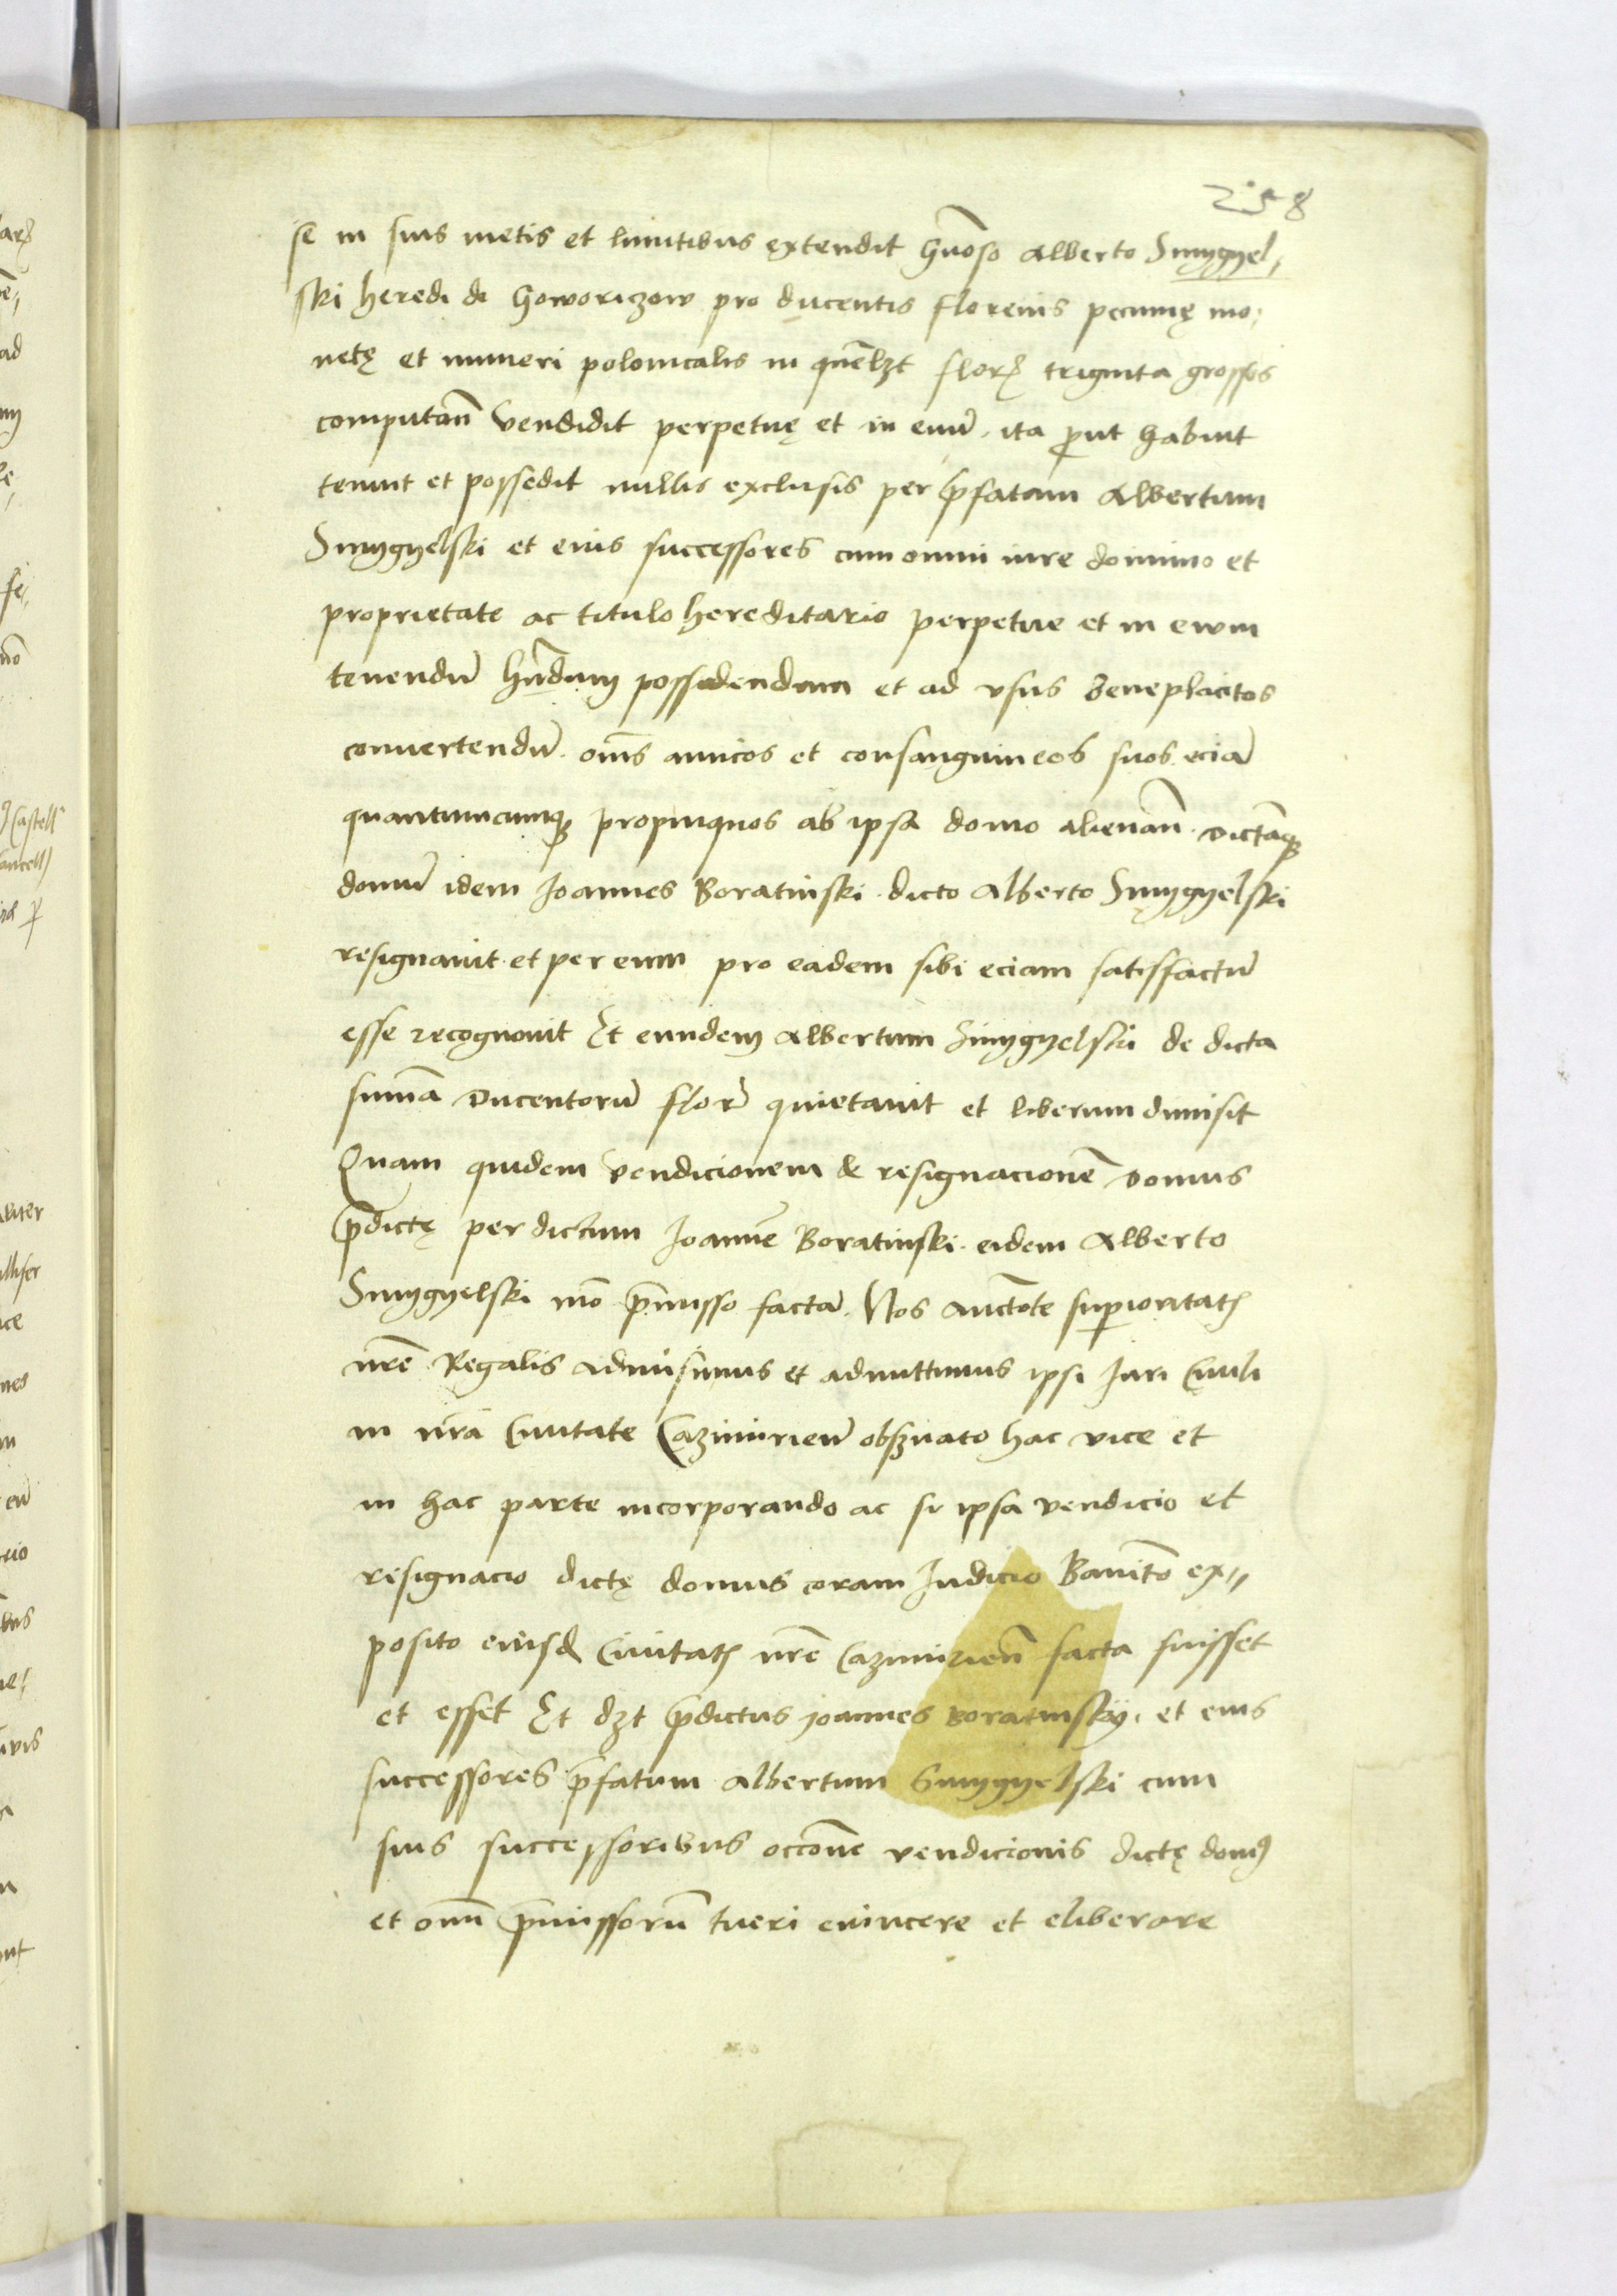 258
se in suis metis et limitibus extendit gn̄oso Alberto Smygyel,
ski heredi de Goworizow pro ducentis florenis pecunię mo,
netę et numeri polonicalis in quēlzt flor̄ triginta grossos
computan̄ vendidit perpetuę et in eūū. ita p̄ut habuit
tenuit et possedit nullis exclusis per p̄fatam Albertum
Smygyelski et eius successores cum omni iure dominio et
proprietate ac titulo hereditario perpetue et in ewm
tenendū hn̄dum possidendum et ad vsus beneplacitos
conuertendū. om̄s amicos et consanguineos suos. eciā
quantumcumqꝫ propinquos ab ipsa domo alienan̄. dictāqꝫ
domū idem Ioannes Boratinski. dicto Alberto Smygyelski
resignauit. et per eum pro eadem sibi eciam satisfactū
esse recognouit Et eundem Albertum Smygyelski de dicta
summa ducentorū flor̄ quietauit et liberum dimisit
Quam quidem vendicionem & resignacionē domus
p̄dictę per dictum Ioannē Boratinski. eidem Alberto
Smygyelski mō p̄misso factā. Nos auctōte supioritatꝭ
nr̄e Regalis admisimus et admittimus ipsi Iuri Ciuili
in nr̄a Ciuitate Cazimirien̄ obẜuato hac vice et
in hac parte incorporando ac si ipsa vendicio et
resignacio dictę domus coram Iudicio Bannito ex,,
posito eiusd̄ Ciuitatꝭ nr̄e Cazimirien̄ facta fuisset
et esset Et dꝫt p̄dictus Joannes Boratinskij. et eius
successores p̄fatum Albertum Smygyelski cum
suis successoribus occōne vendicionis dictę domꝰ
et om̄ū p̄missorū tueri euincere et eliberare